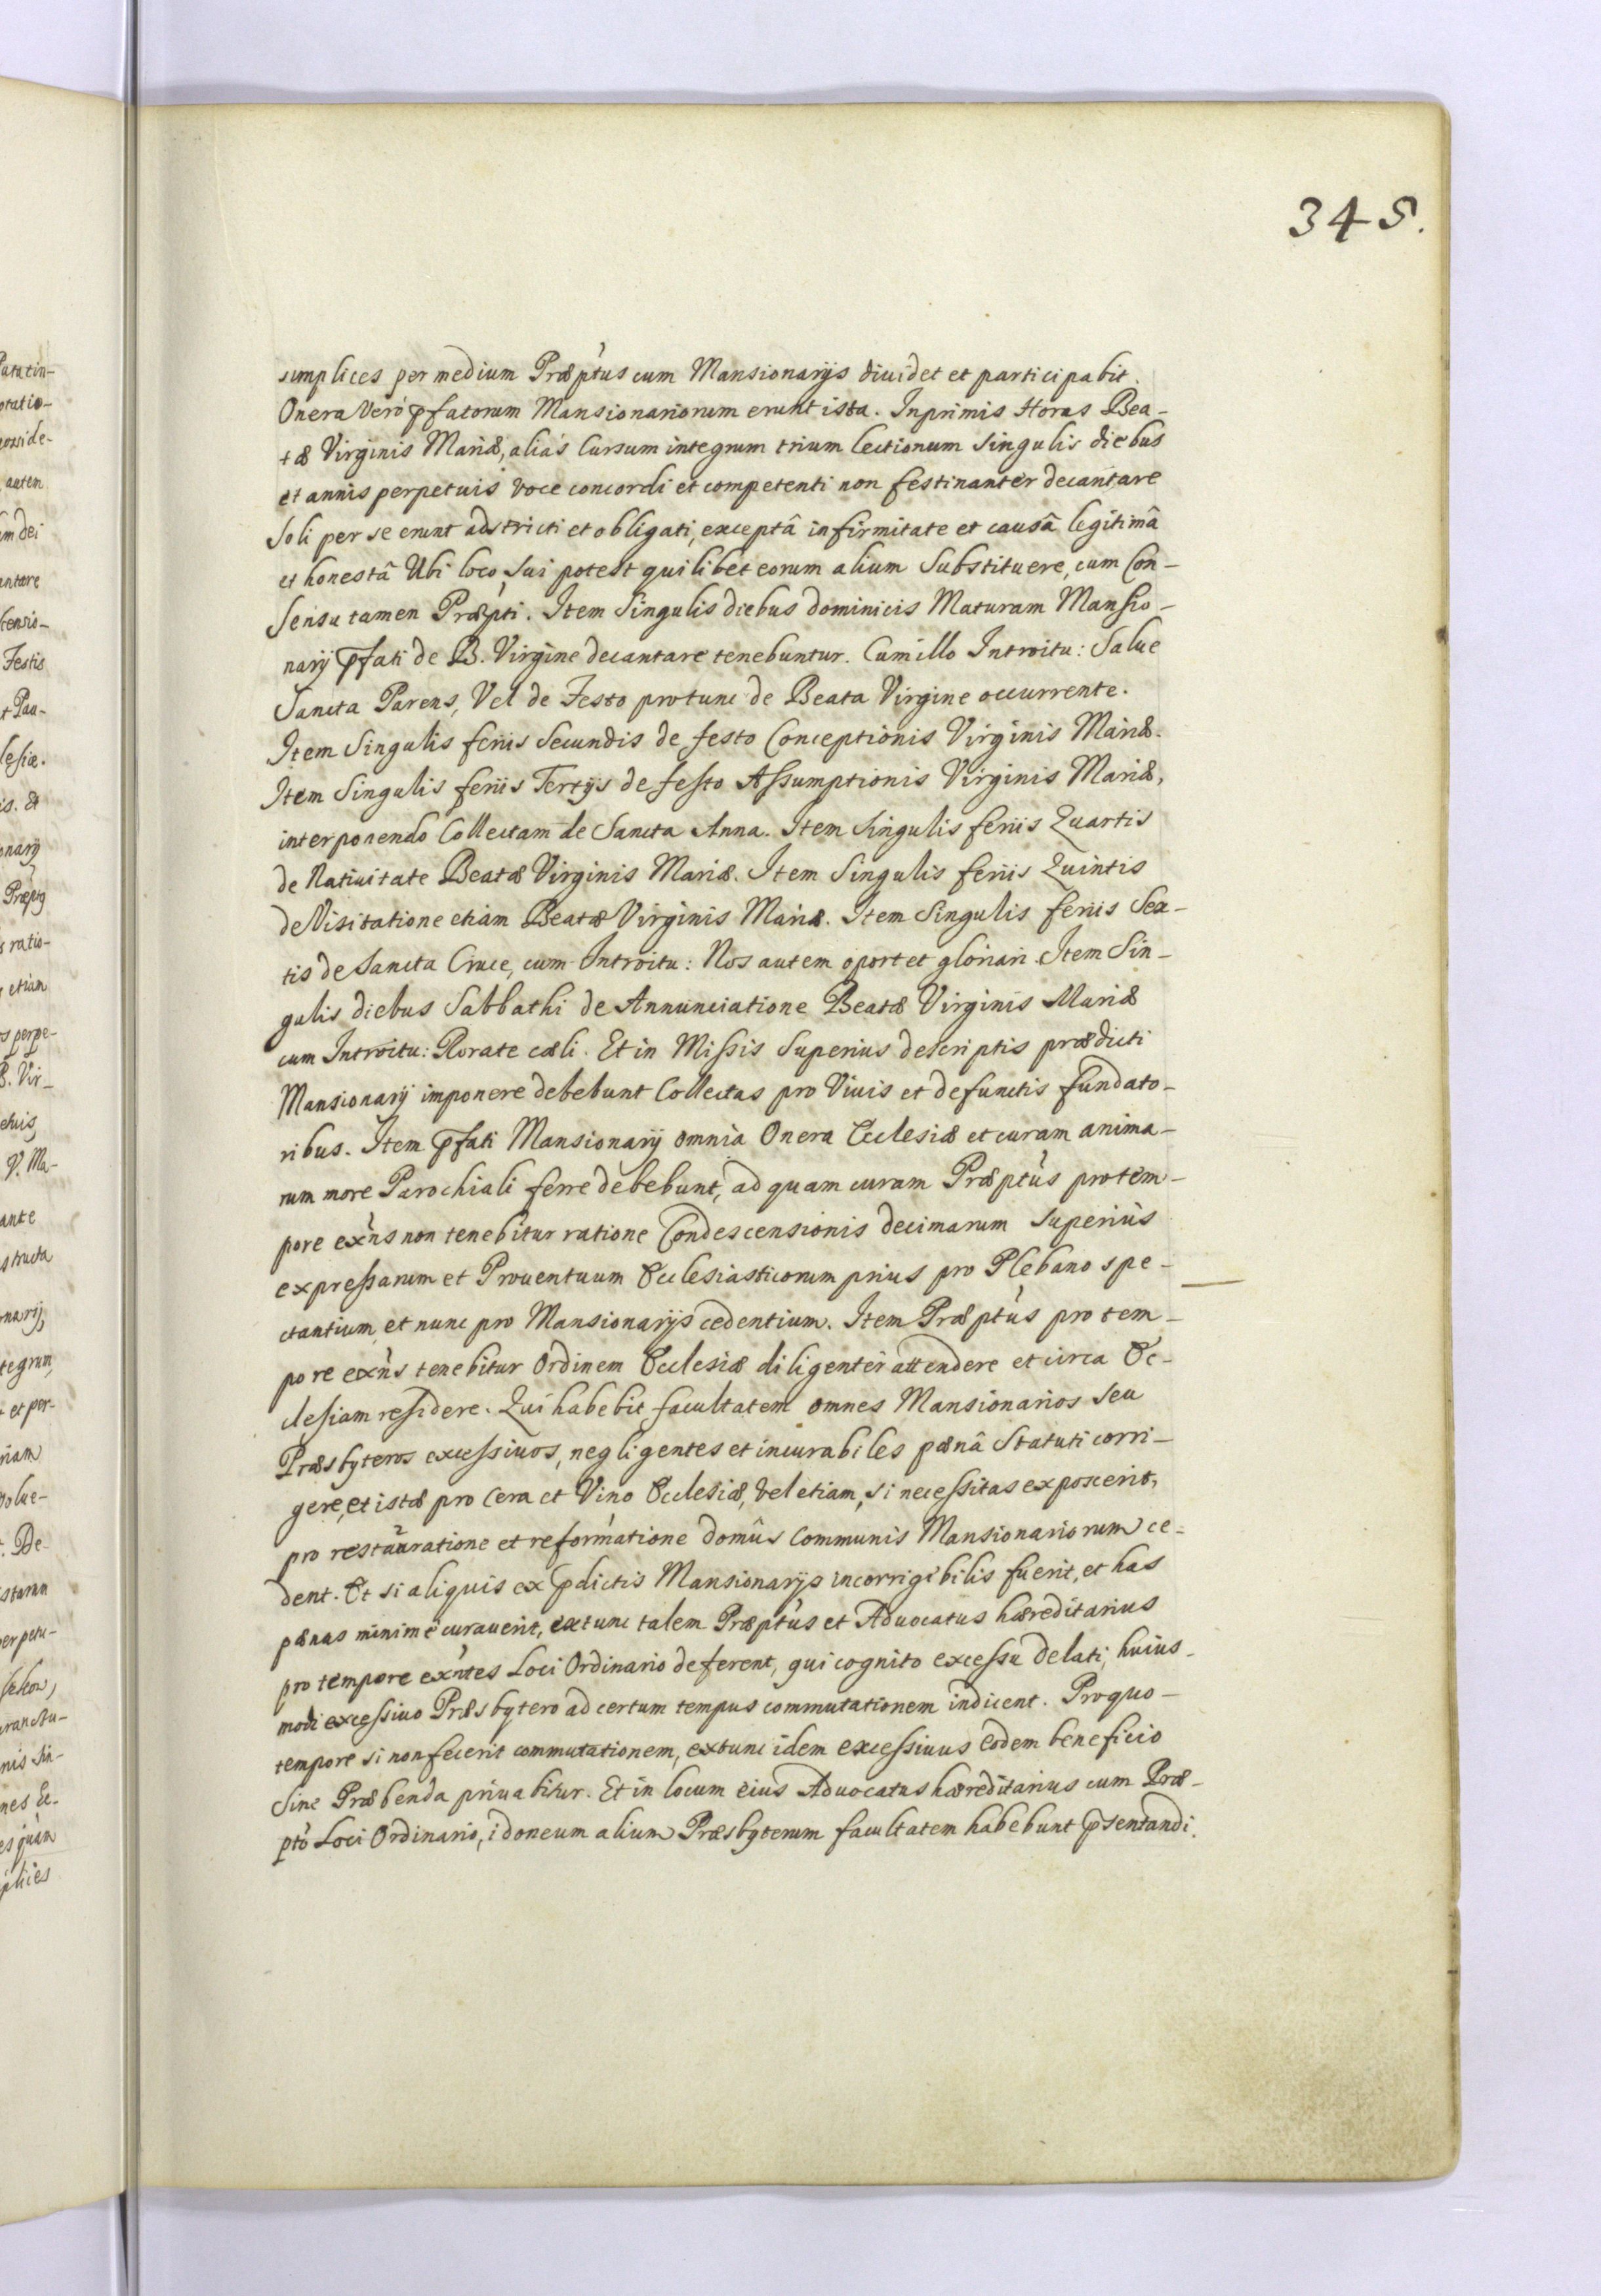 345.
simplices per medium Præptus cum Mansionarijs diuidet et participabit.
Onera Verò pfatorum Mansionariorum erunt ista. Inprimis Horas Bea-
tæ Virginis Mariæ, aliàs Cursum integrum trium lectionum singulis diebus
et annis perpetuis voce concordi et competenti non festinanter decantare
soli per se erunt adstricti et obligati, exceptâ infirmitate et causâ legitimâ
et honestâ Ubi loco sui potest quilibet eorum alium Substituere, cum Con-
sensu tamen Præpti. Item Singulis diebus dominicis Maturam Mansio-
narij pfati de B. Virgine decantare tenebuntur. Cum illo Introitu: Salue
Sancta Parens, Vel de Festo protunc de Beata Virgine occurrente.
Item Singulis feriis Secundis de festo Conceptionis Virginis Mariæ.
Item Singulis feriis Tertijs de festo Assumptionis Virginis Mariæ,
interponendo Collectam de Sancta Anna. Item Singulis feriis Quartis
de Natiuitate Beatæ Virginis Mariæ. Item Singulis feriis Quintis
de Visitatione etiam Beatæ Virginis Mariæ. Item Singulis feriis Sex-
tis de Sancta Cruce, cum Introitu: Nos autem oportet gloriari. Item Sin-
gulis diebus Sabbathi de Annunciatione Beatæ Virginis Mariæ
cum Introitu: Rorate cæli. Et in Missis Superius descriptis prædicti
Mansionarij imponere debebunt Collectas pro Viuis et defunctis fundato-
ribus. Item pfati Mansionarij omnia Onera Ecclesiæ et curam anima-
rum more Parochiali ferre debebunt, ad quam curam Præptus protem-
pore exñs non tenebitur ratione Condescensionis decimarum superiùs
expressarum et Prouentuum Ecclesiasticorum prius pro Plebano spe-
ctantium, et nunc pro Mansionarijs cedentium. Item Præptus pro tem-
pore exñs tenebitur Ordinem Ecclesiæ diligenter attendere et circa Ec-
clesiam residere. Qui habebit facultatem omnes Mansionarios seu
Præsbyteros excessiuos, negligentes et incurabiles pænâ Statuti corri-
gere, et istæ pro Cera et Vino Ecclesiæ, vel etiam, si necessitas exposcerit,
pro restauratione et reformatione domûs Communis Mansionariorum ce-
dent. Et si aliquis ex pdictis Mansionarijs incorrigibilis fuerit, et has
pænas minimè curauerit, extunc talem Præptus et Aduocatus hæreditarius
pro tempore exñtes Loci Ordinario deferent, qui cognito excessu delati, huius-
modi excessiuo Præsbytero ad certum tempus commutationem indicent. Pro quo-
tempore si non fecerit commutationem, extunc idem excessiuus eodem beneficio
Sine Præbenda priuabitur. Et in locum eius Aduocatus hæreditarius cum Præ-
pto Loci Ordinario, idoneum alium Præsbyterum facultatem habebunt psentandi.